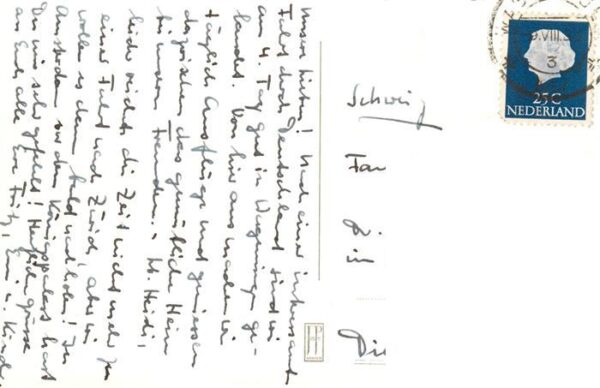 Unsere Lieben! Nach einer interessant
Fahrt durch Deutschland sind wir
am 4. Tag gut in Wageningen ge-
landet. Von hier aus machen wir
täglich Ausflüge und geniessen
dazwischen das gemütliche Heim
bei unsern Freunden. Lb. Heidi,
leider reicht die Zeit nicht mehr zu
einer Fahrt nach Zürich, aber wir
wollen es dann bald nachholen! In
Amsterdam vor dem Königspalast hast
Du uns sehr gefehlt! Herzliche Grüsse
an Euch alle Eure Fritz, u. Kinde
Schweiz
Fam
in
Die
25C
NEDERLAND
VIII
3